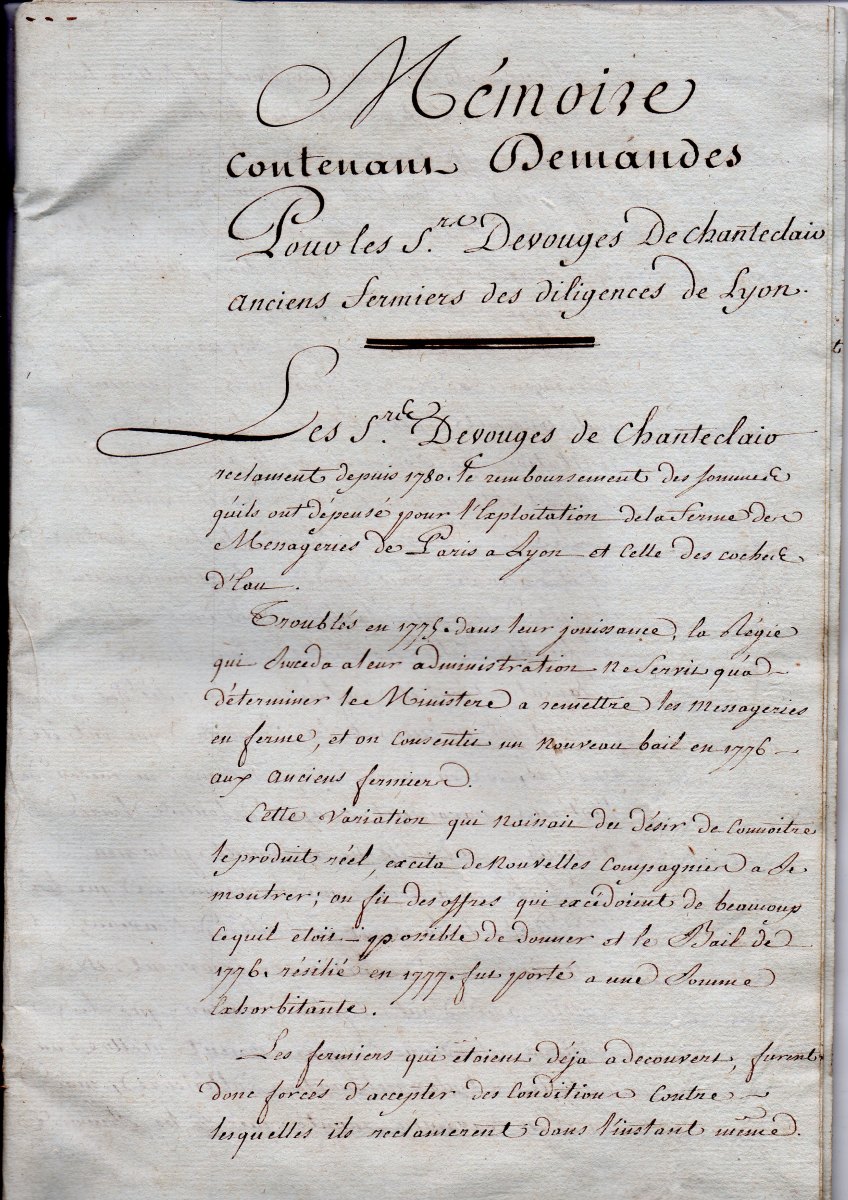 Mémoire
Contenant Demandes
Pour les S.rs Devouges De Chanteclair
anciens fermiers des diligences de Lyon.
Les S.rs Devouges de Chanteclair
reclament depuis 1780. le remboursement des sommes
qu'ils ont dépensé pour l'Exploitation de la ferme des
Menageries de Paris a Lyon et celle des coches
d'Eau.
Troublés en 1775. dans leur jouissance, la Régie
qui succeda a leur administration ne servit qu'à
déterminer le Ministere a remettre les Messageries
en ferme, et on consentit un nouveau bail en 1776
aux anciens fermiers.
Cette variation qui naissait du désir de Connoitre
le produit réel, excita de nouvelles Compagnies a se
montrer; on fit des offres qui excédoient de beaucoup
ce quil etoit possible de donner et le Bail de
1776. résilié en 1777. fut porté a une Somme
Exhorbitante.
Les fermiers qui étoient déja a decouvert, furent
donc forcés d'accepter des Conditions Contre
lesquelles ils reclamerent dans l'instant même.